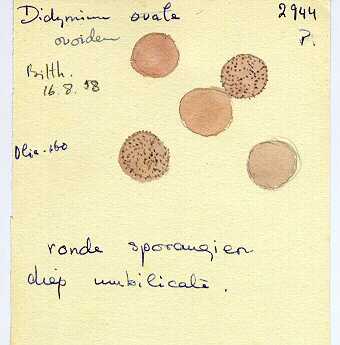 Didymium ovale 2944
ovoiden P.
Bilth.
16.8.58
Olie. 160
ronde sporangien
diep umbilicate.